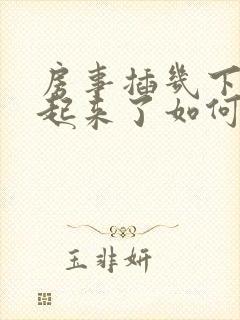 房事插几下
起来了如何
玉非妍